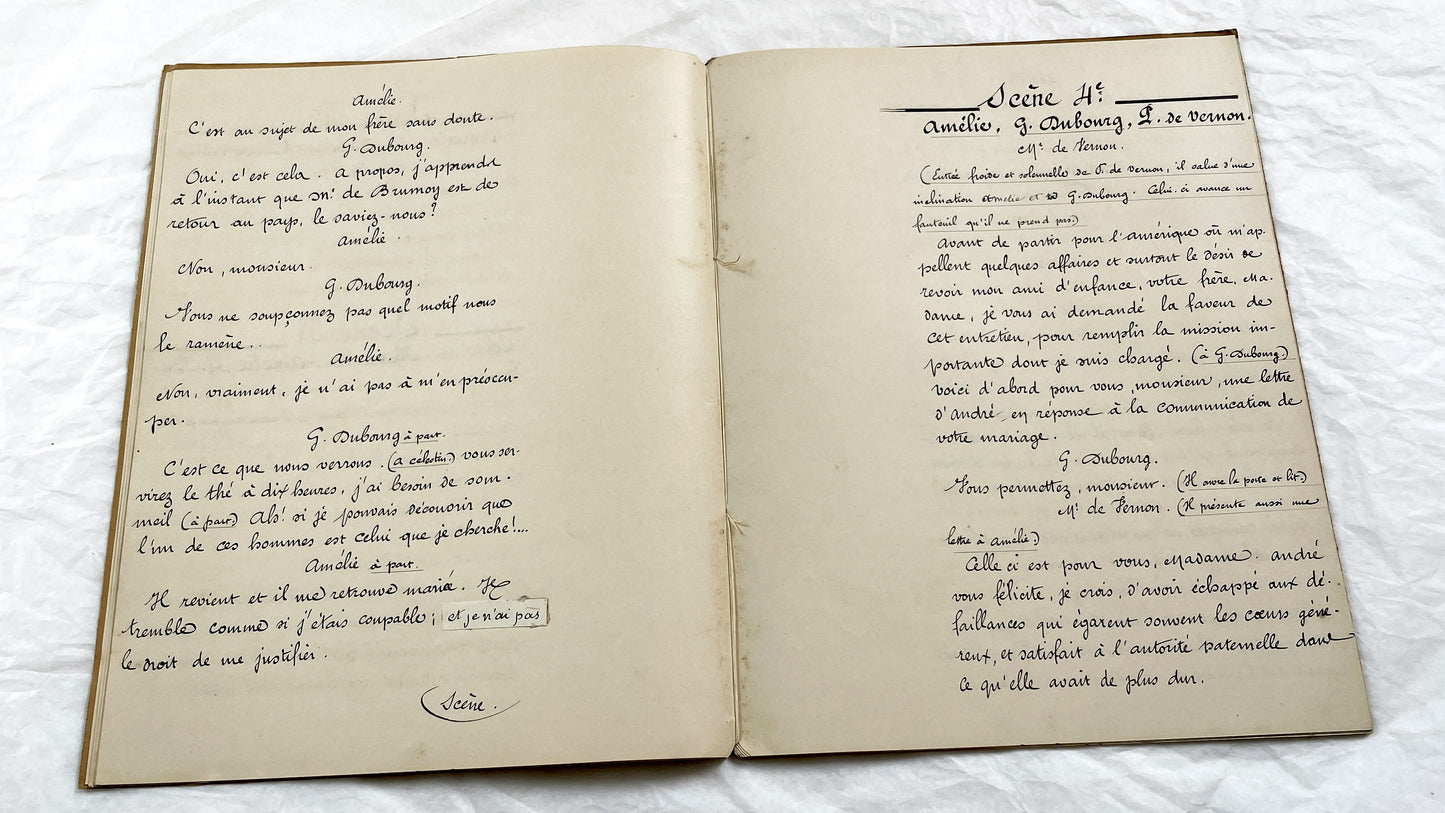 Amélie.
C'est au sujet de mon frère sans doute.
G. Dubourg.
Oui, c'est cela. A propos, j'apprends
à l'instant que Mr. de Brumoy est de
retour au pays, le saviez-vous?
Amélie.
Non, monsieur.
G. Dubourg.
Vous ne soupçonnez pas quel motif nous
le ramène..
Amélie.
Non, vraiment, je n'ai pas à m'en préoccu-
per.
G. Dubourg à part.
C'est ce que nous verrons. (à célestin.) vous ser-
virez le thé à dix heures, j'ai besoin de som-
meil (à part.) Ah! si je pouvais découvrir que
l'un de ces hommes est celui que je cherche!...
Amélie à part.
Il revient et il me retrouve mariée. Il
tremble comme si j'étais coupable; et je n'ai pas
le droit de me justifier.
Scène.
Scène 4e.
Amélie, G. Dubourg, P. de Vernon.
Mr. de Vernon.
(Entrée froide et solennelle de P. de Vernon, il salue d'une
inclination Amélie et G. Dubourg. Celui-ci avance un
fauteuil qu'il ne prend pas.)
Avant de partir pour l'amérique où m'ap-
pellent quelques affaires et surtout le désir de
revoir mon ami d'enfance, votre frère, Ma-
dame, je vous ai demandé la faveur de
cet entretien, pour remplir la mission im-
portante dont je suis chargé. (à G. Dubourg.)
voici d'abord pour vous, monsieur, une lettre
d'andré en réponse à la communication de
votre mariage.
G. Dubourg.
Vous permettez, monsieur. (Il ouvre la porte et lit.)
Mr. de Vernon. (Il présente aussi une
lettre à amélie.)
Celle ci est pour vous, Madame. andré
vous félicite, je crois, d'avoir échappé aux dé-
faillances qui égarent souvent les cœurs géné-
reux, et satisfait à l'autorité paternelle dans
ce qu'elle avait de plus dur.